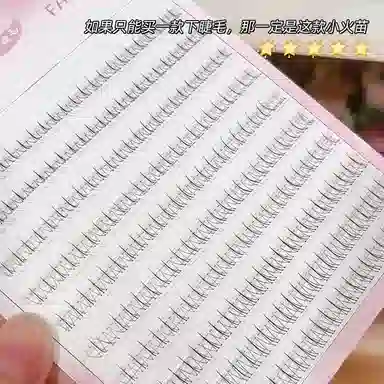 如果只能买一款下睫毛，那一定是这款小火苗
FA